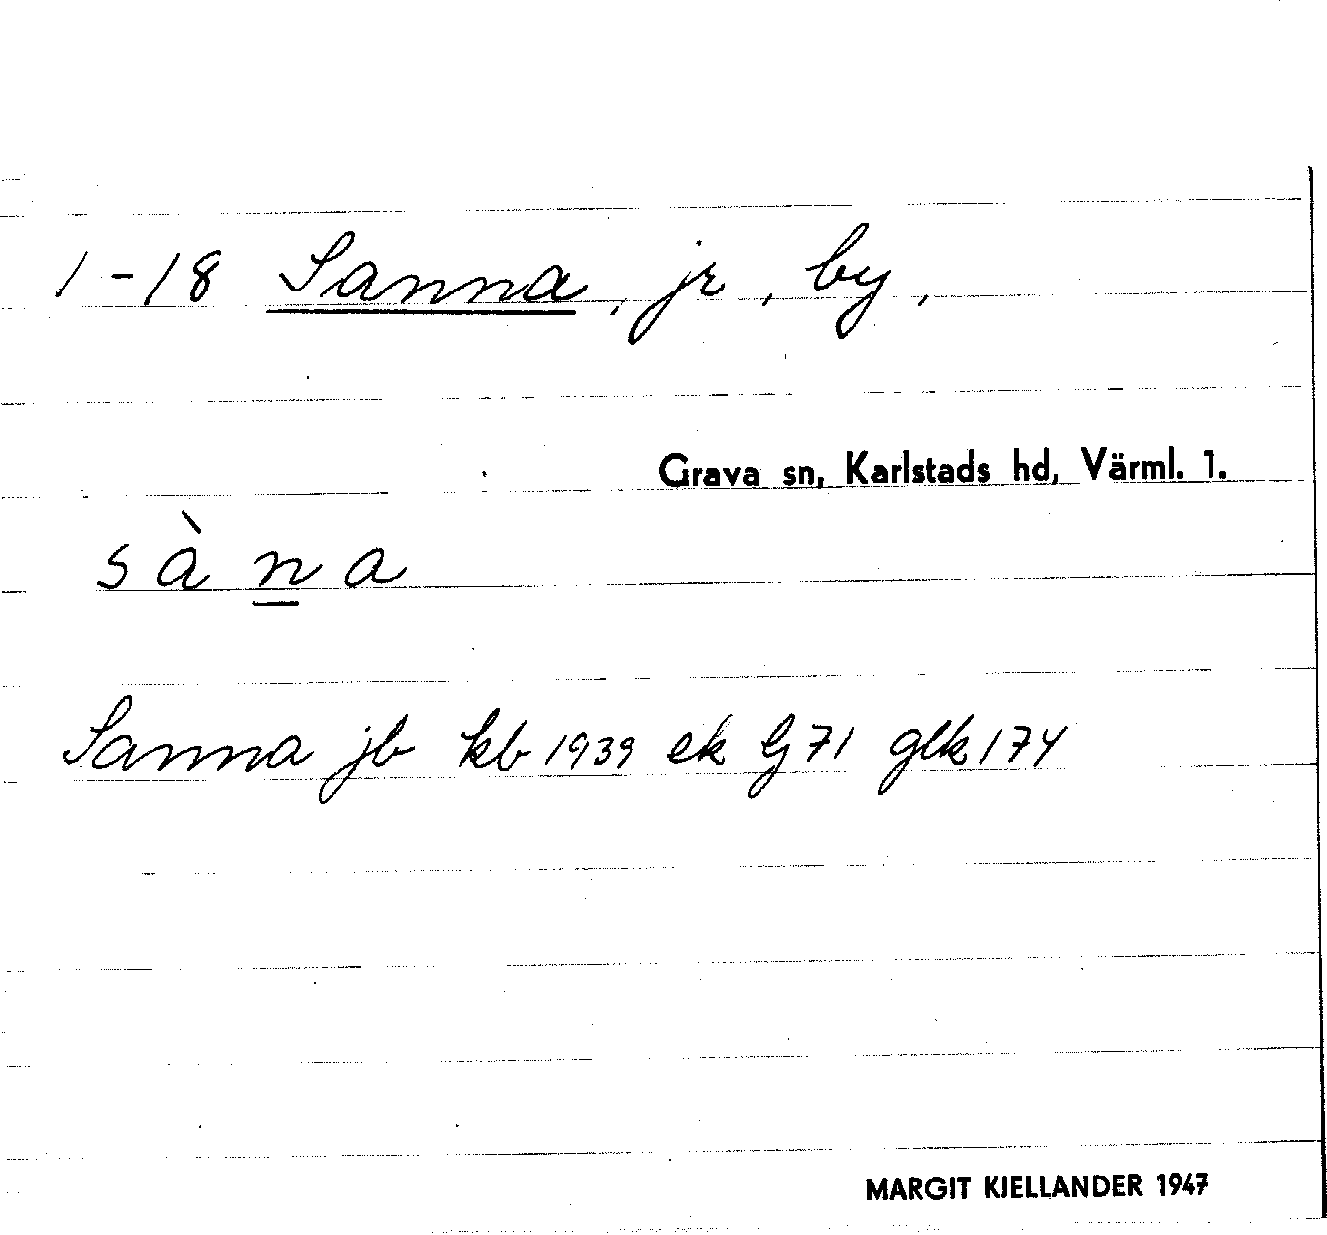 1-18 Sanna, jr, by,
Grava sn, Karlstads hd, Värml. 1.
sàna
Sanna jb kb 1939 ek Lj 71 glk 174
MARGIT KJELLANDER 1947